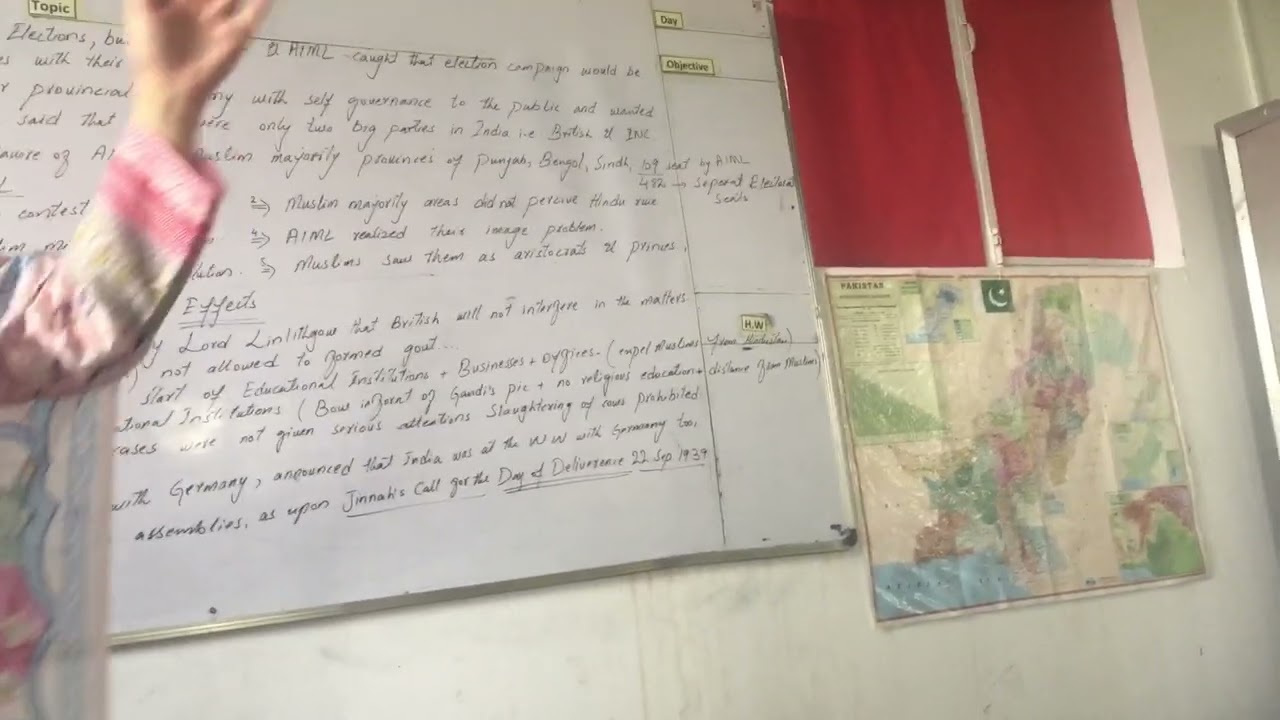 Topic
Day
Objective
Elections, & AIML caught that election campaign would be
with their
provincial with self governance to the public and wanted
said that only two big parties in India i.e British & INC
of Muslim majority provinces of Punjab, Bengol, Sindh, 109 seat by AIML
482 → Seperat Electoral
Seats
contest 2⇒ Muslim majority areas did not percive Hindu rule
4⇒ AIML realized their image problem.
5⇒ Muslims saw them as aristocrats & princes,
Effects
Lord Linlithgow that British will not interfere in the matters
not allowed to formed govt...
H.W
start of Educational Institutions + Businesses + Offices. (expel Muslims from Hindustan)
Institutions (Bow infornt of Gandi's pic + no religious education + distance from Muslims)
cases were not given serious attentions Slaughtering of cows prohibited
with Germany, anounced that India was at the WW with Germany too,
assemblies, as upon Jinnah's Call for the Day of Deliverence 22 Sep 1939
PAKISTAN